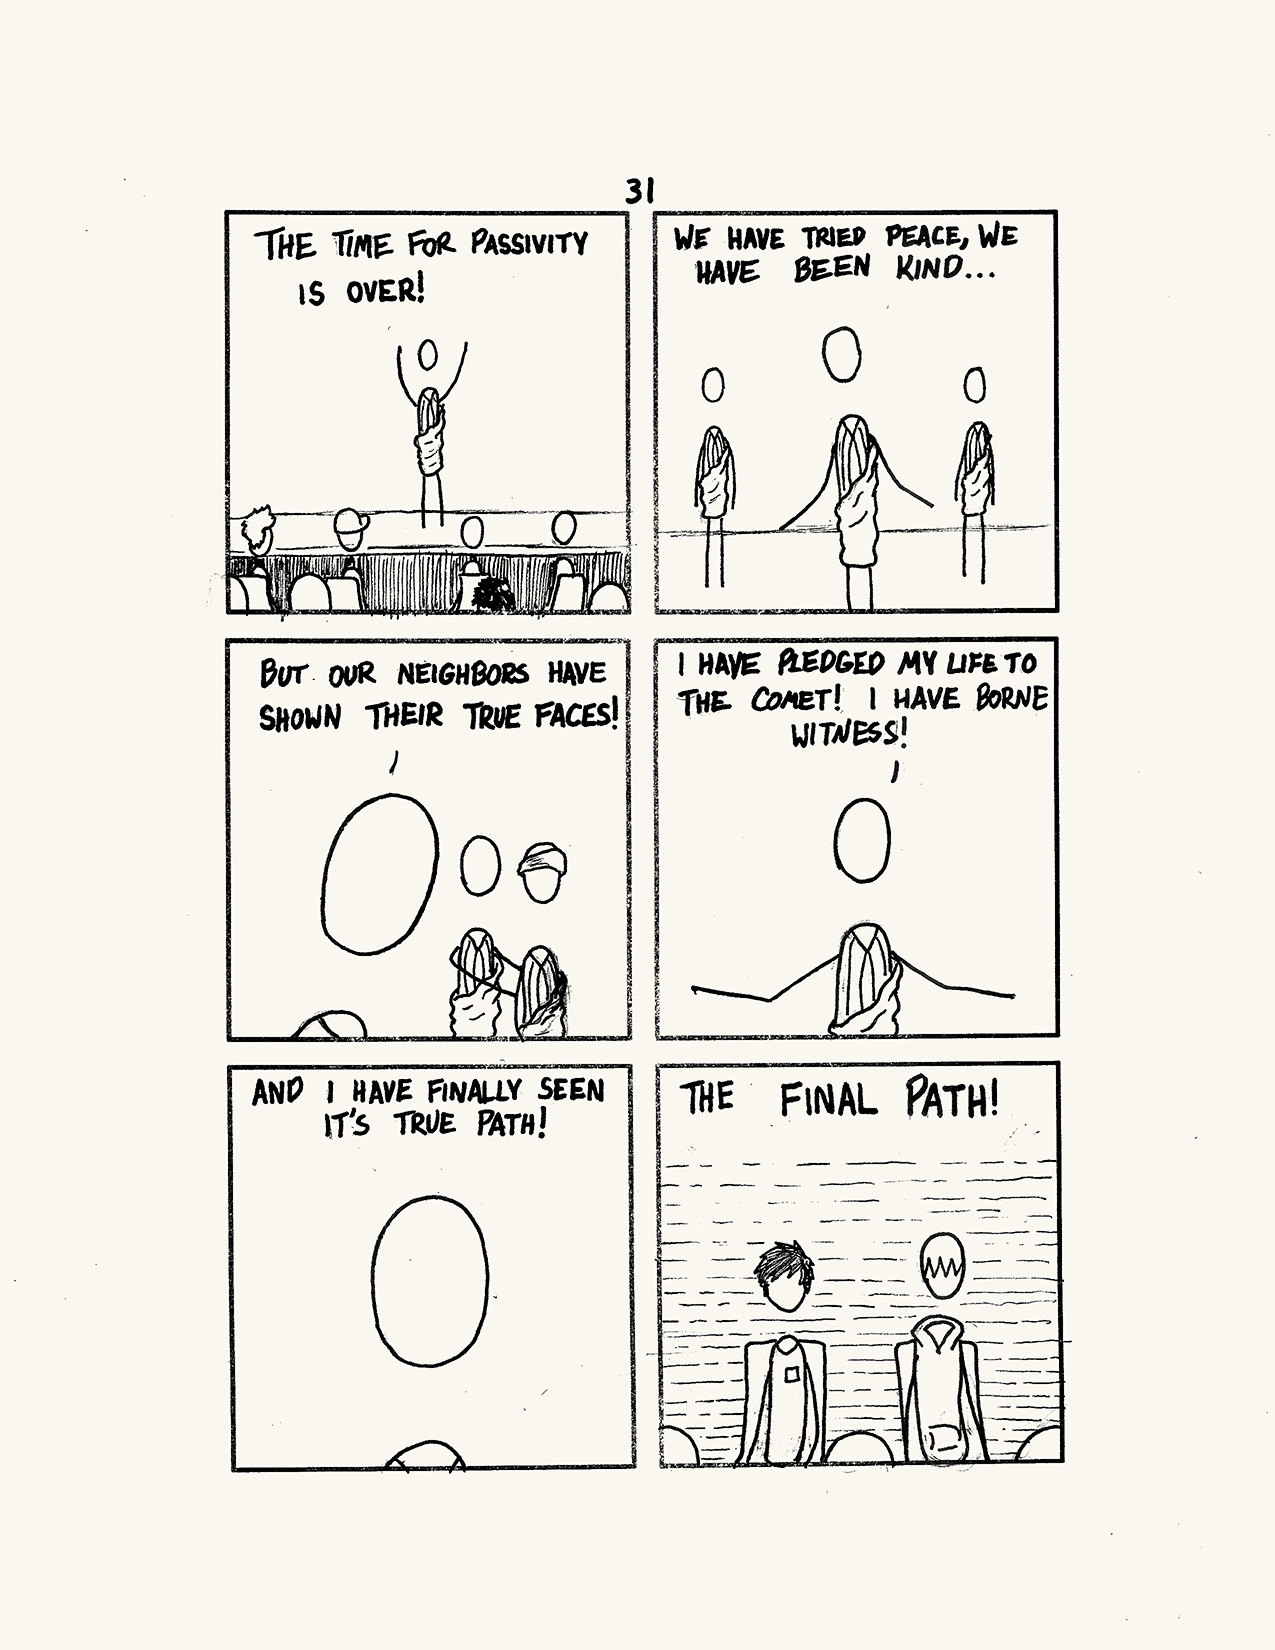 31
THE TIME FOR PASSIVITY
IS OVER!
WE HAVE TRIED PEACE, WE
HAVE BEEN KIND...
BUT OUR NEIGHBORS HAVE
SHOWN THEIR TRUE FACES!
I HAVE PLEDGED MY LIFE TO
THE COMET! I HAVE BORNE
WITNESS!
AND I HAVE FINALLY SEEN
IT'S TRUE PATH!
THE FINAL PATH!